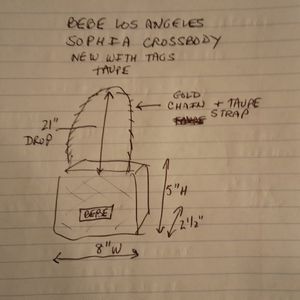 BEBE LOS ANGELES
SOPHIA CROSSBODY
NEW WITH TAGS
TAUPE
GOLD
CHAIN + TAUPE
STRAP
21"
DROP
5"H
2 1/2"
BEBE
8"W